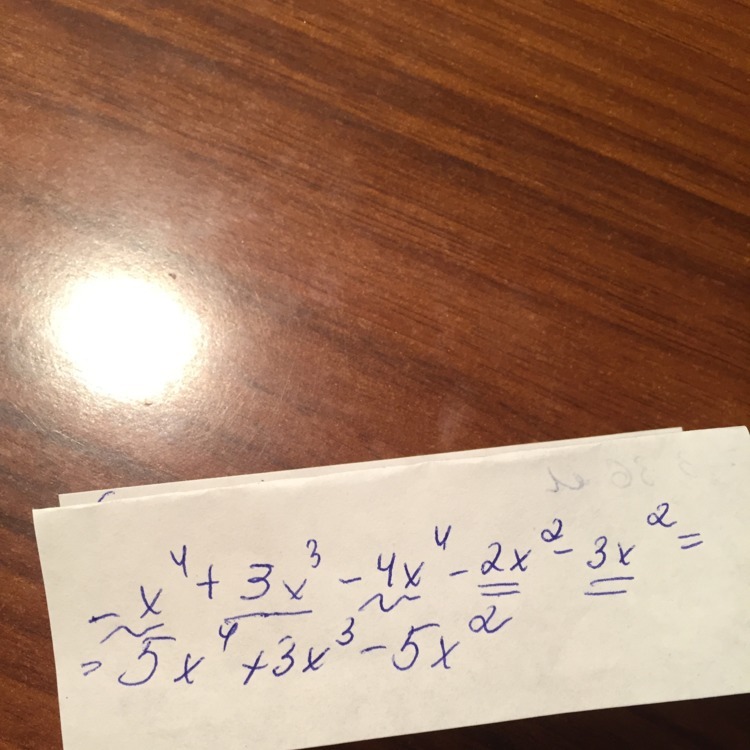 -x⁴+3x³-4x⁴-2x²-3x²=
=5x⁴+3x³-5x²